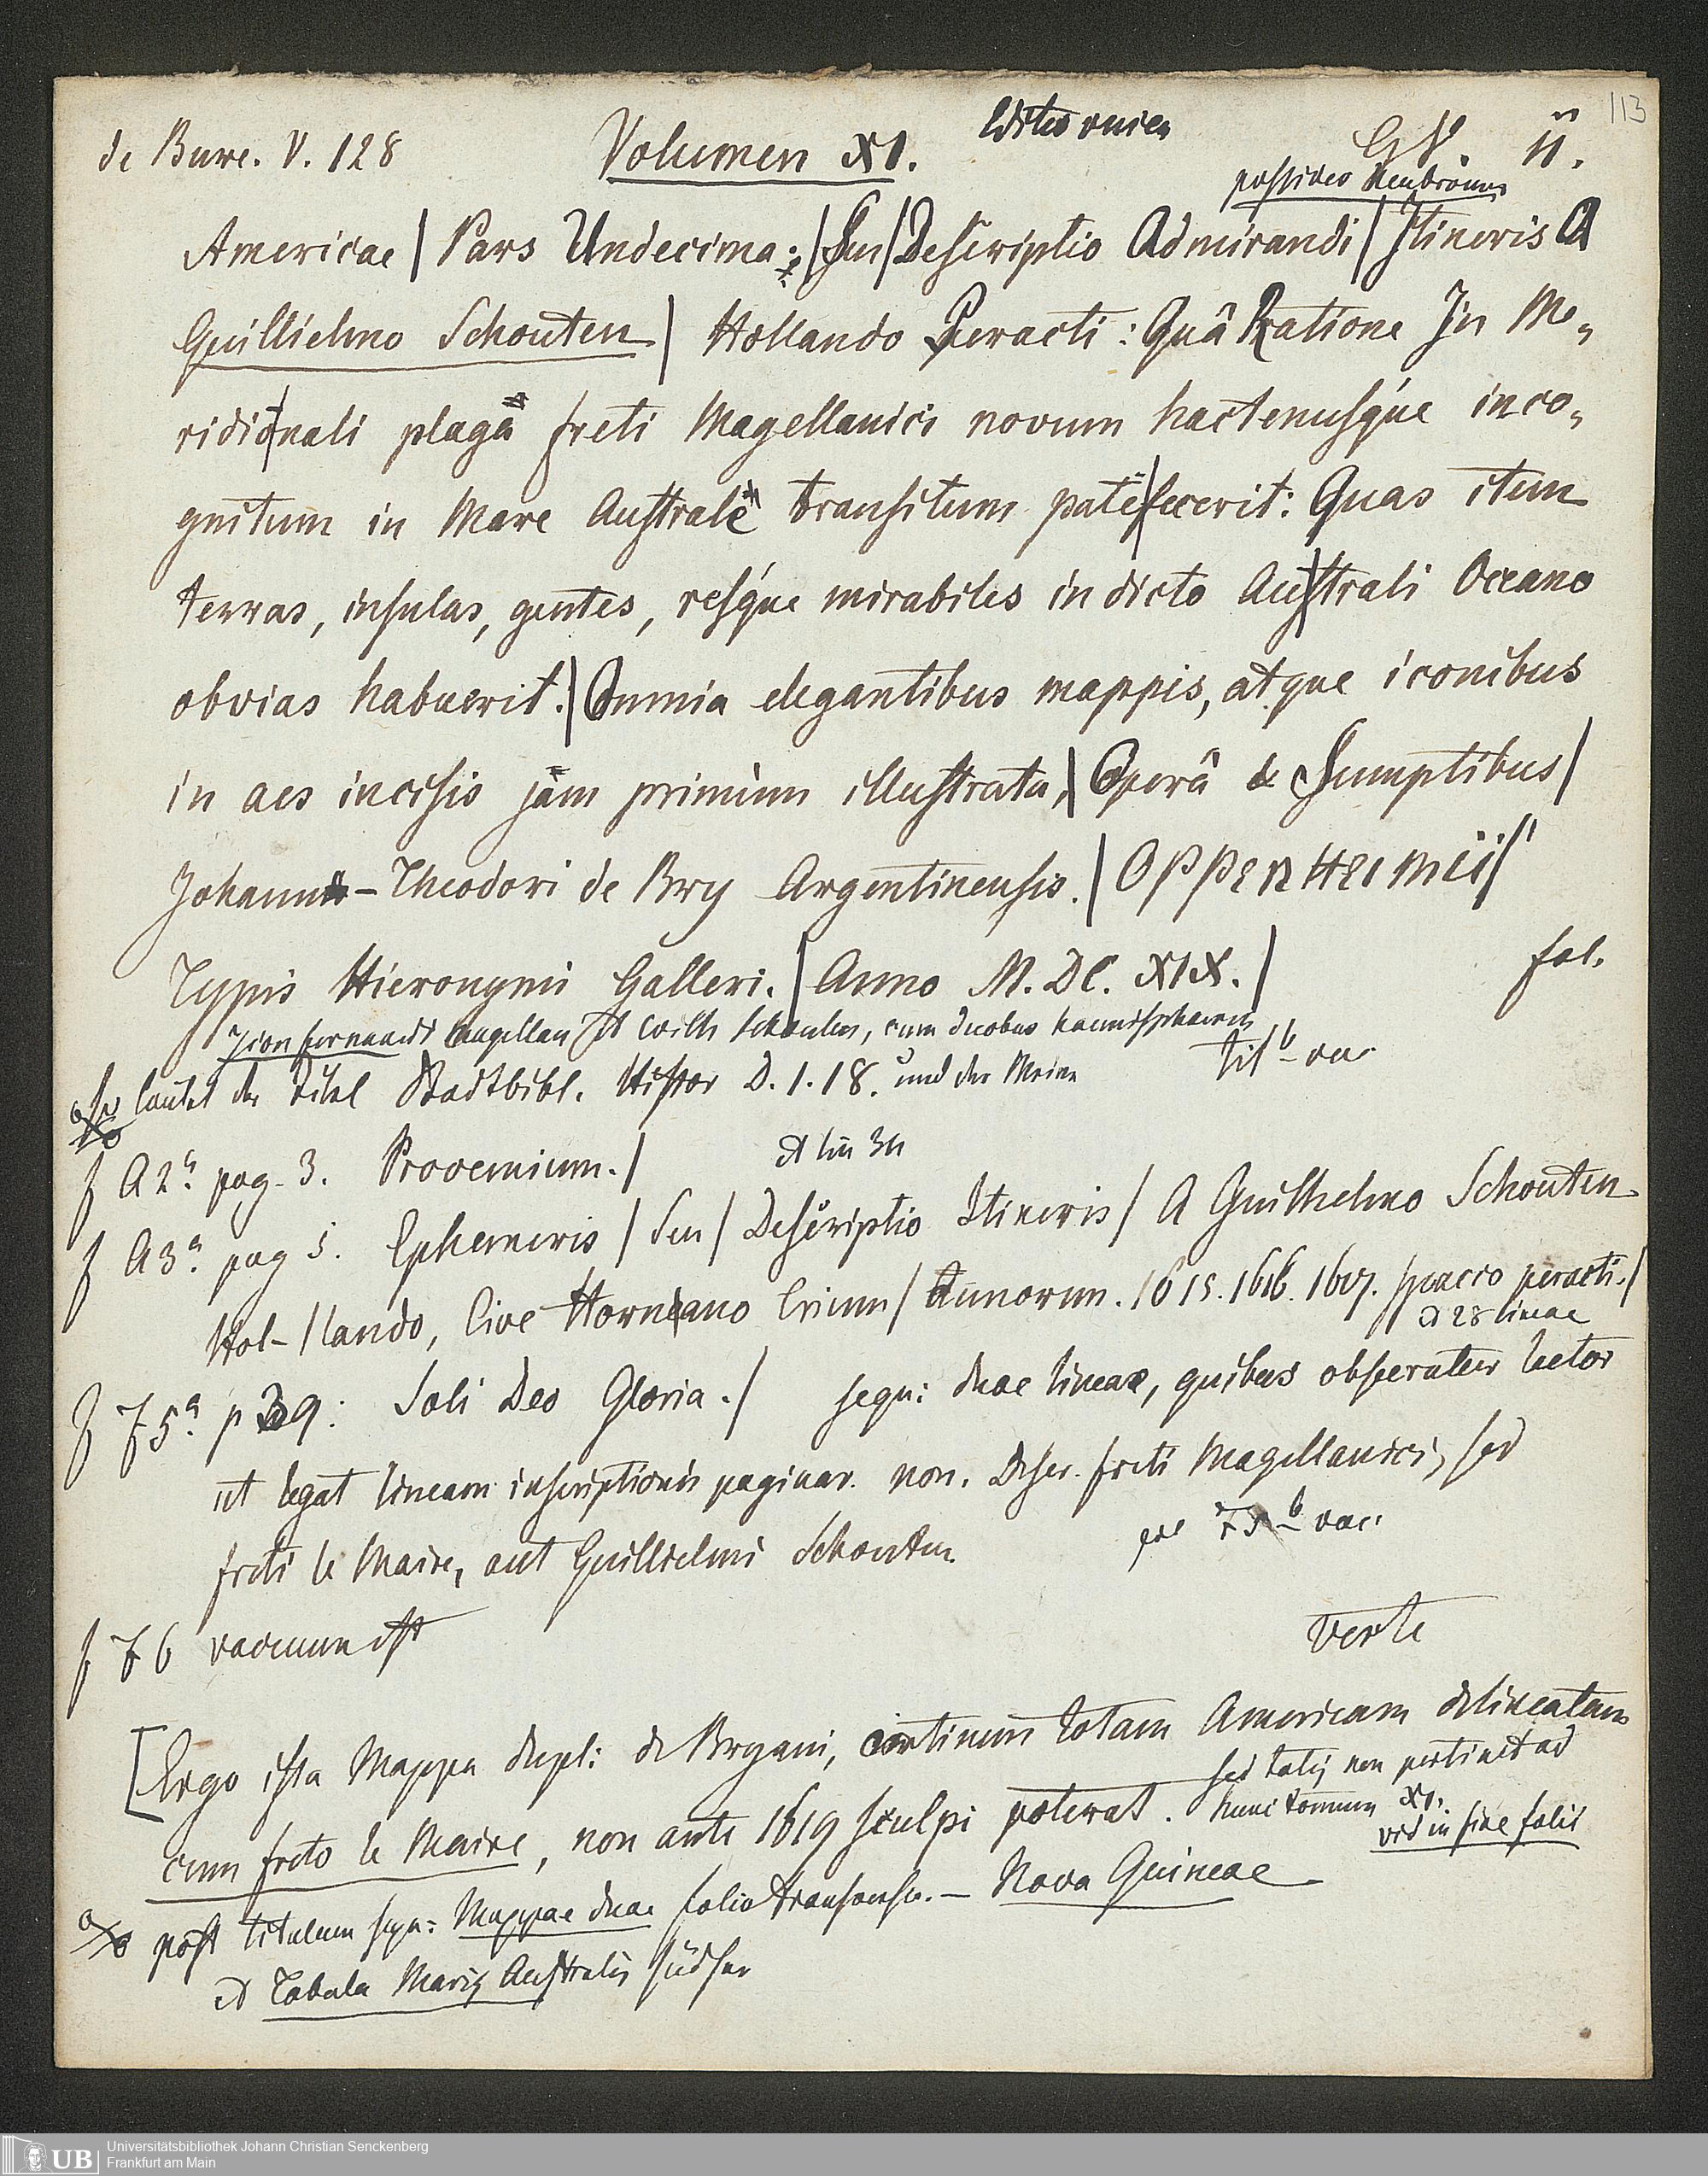 113
de Bure. V. 128 Volumen XI. Editio unica GV. 11.
possideo
Americae | Pars Undecima: | Seu | Descriptio Admirandi | Itineris A
Guillielmo Schouten | Hollando Peracti: Quâ Ratione In Me„
ridio|nali plaga freti Magellanici novum hactenusq́ue inco„
gnitum in Mare Australe transitum pate|fecerit: Quas item
terras, insulas, gentes, resq́ue mirabiles in dicto Au|strali Oceano
obvias habuerit. | Omnia elegantibus mappis, atque iconibus
in aes incisis jam primùm illustrata, | Operâ & Sumptibus |
Johann-Theodori de Bry Argentinensis. | OPPENHEIMII |
Typis Hieronymi Galleri. | Anno M. DC. XIX. | fol.
Magellan et Wilh Schouten, cum duobus haemisphaeriis
So lautet der Titel Stadtbibl. Histor D. 1. 18. und der Meine Titb vac.
f A2a. pag. 3. Prooemium. | et lin 34
f A3a. pag 5. Ephemeris | Seu | Descriptio Itineris | A Guilhelmo Schouten
Hol- | lando, Cive Hornano | Annorum. 1615. 1616. 1617. spacio peracti. |
et 28 lineae
f F5a. p 39: Soli Deo Gloria. | sequ: duae lineae, quibus obsecratur Lector
ut legat lineam inscriptionis paginar. non. Descr. freti Magellanici, sed
freti le Maire, aut Guillielmi Schouten F5b vac.
f F6 vacuum est verte
[Ergo ista Mappa dupl: de Bryani, continens totam Americam delineatam
cum freto le Maire, non ante 1619 sculpi poterat. sed talis non pertinet ad
hunc tomum XI.
vid in fine folii
post titulum sequ: Mappae duae folio transverso. — Nova Guineae
et Tabula Maris Australis Südsee
UB Universitätsbibliothek Johann Christian Senckenberg
Frankfurt am Main